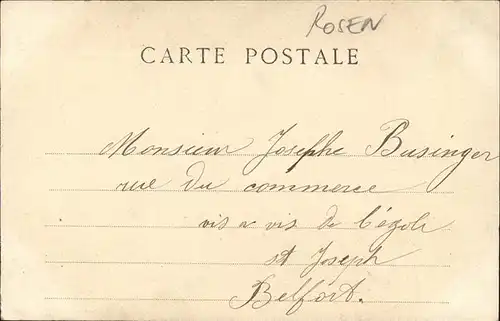 ROSEN
CARTE POSTALE
Monsieur Josephe Businger
rue du commerce
vis a vis de l'égoli
st Joseph
Belfort.